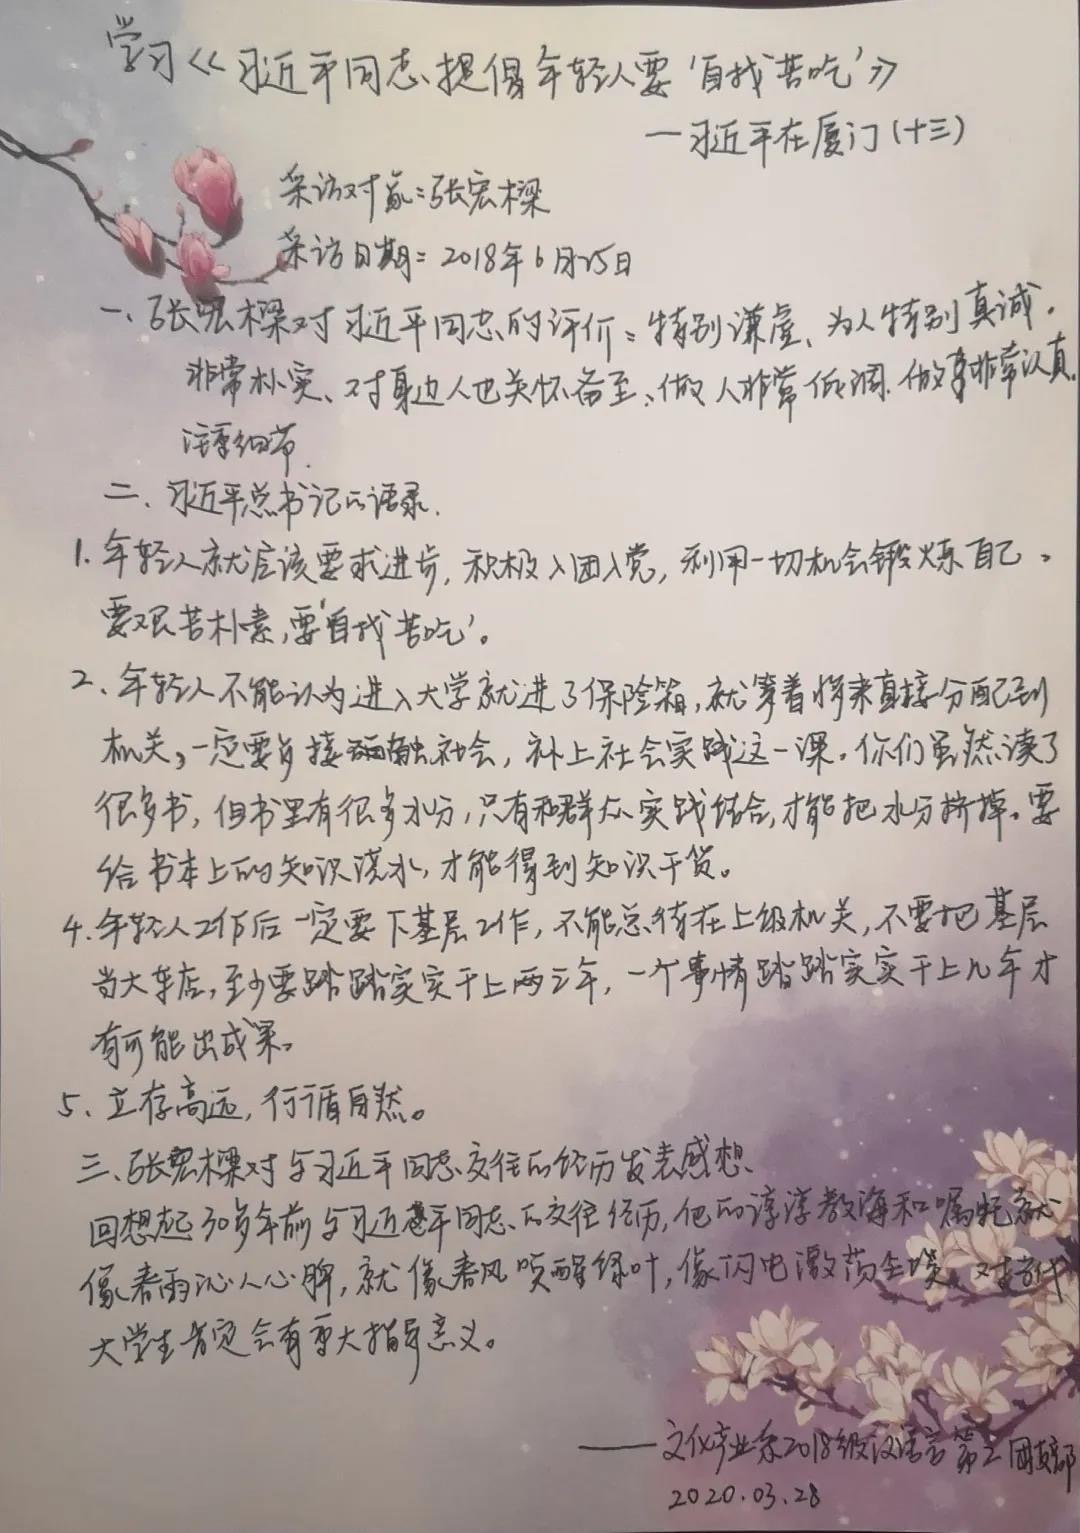 学习《习近平同志提倡年轻人要'自找苦吃'》
—习近平在厦门(十三)
采访对象:张宏樑
采访日期:2018年6月25日
一、张宏樑对习近平同志的评价:特别谦虚、为人特别真诚,
非常朴实、对身边人也关怀备至、做人非常低调、做事非常认真,
注重细节.
二、习近平总书记的语录.
1.年轻人就应该要求进步,积极入团入党,利用一切机会锻炼自己。
要艰苦朴素,要'自找苦吃'。
2、年轻人不能认为进入大学就进了保险箱,就等着将来直接分配到
机关,一定要多接触社会,补上社会实践这一课。你们虽然读了
很多书,但书里有很多水分,只有和群众实践结合,才能把水分挤掉。要
给书本上的知识浇水,才能得到知识干货。
4.年轻人工作后一定要下基层工作,不能总待在上级机关,不要把基层
当大车店,至少要踏踏实实干上两三年,一个事情踏踏实实干上几年才
有可能出成果。
5、立存高远,行循自然。
三、张宏樑对与习近平同志交往的经历发表感想.
回想起30多年前与习近平同志的交往经历,他的谆谆教海和嘱托就
像春雨沁人心脾,就像春风唤醒绿叶,像闪电激荡全域,对当代
大学生肯定会有重大指导意义。
——文化产业系2018级汉语言第二团支部
2020.03.28